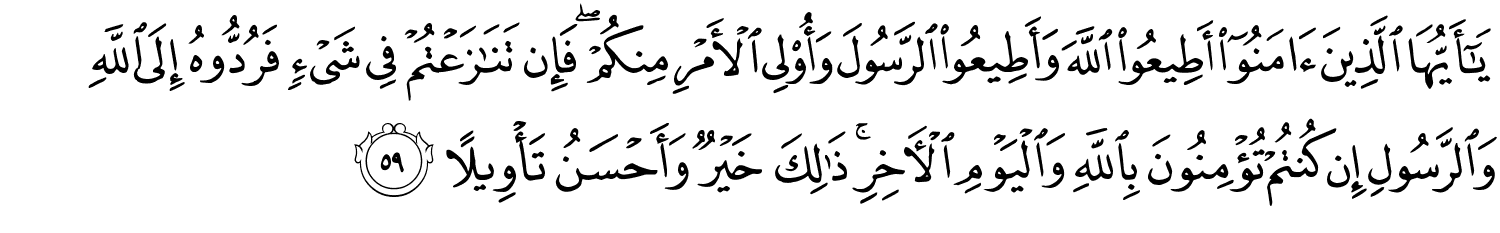 يَـٰٓأَيُّهَا ٱلَّذِينَ ءَامَنُوٓا۟ أَطِيعُوا۟ ٱللَّهَ وَأَطِيعُوا۟ ٱلرَّسُولَ وَأُو۟لِى ٱلْأَمْرِ مِنكُمْ ۖ فَإِن تَنَـٰزَعْتُمْ فِى شَىْءٍ فَرُدُّوهُ إِلَى ٱللَّهِ
وَٱلرَّسُولِ إِن كُنتُمْ تُؤْمِنُونَ بِٱللَّهِ وَٱلْيَوْمِ ٱلْـَٔاخِرِ ۚ ذَٰلِكَ خَيْرٌ وَأَحْسَنُ تَأْوِيلًا ٥٩